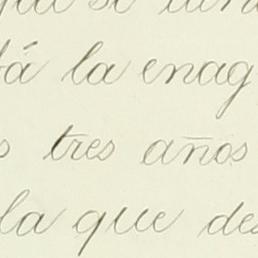 si
tá la enag
s tres años
la que des